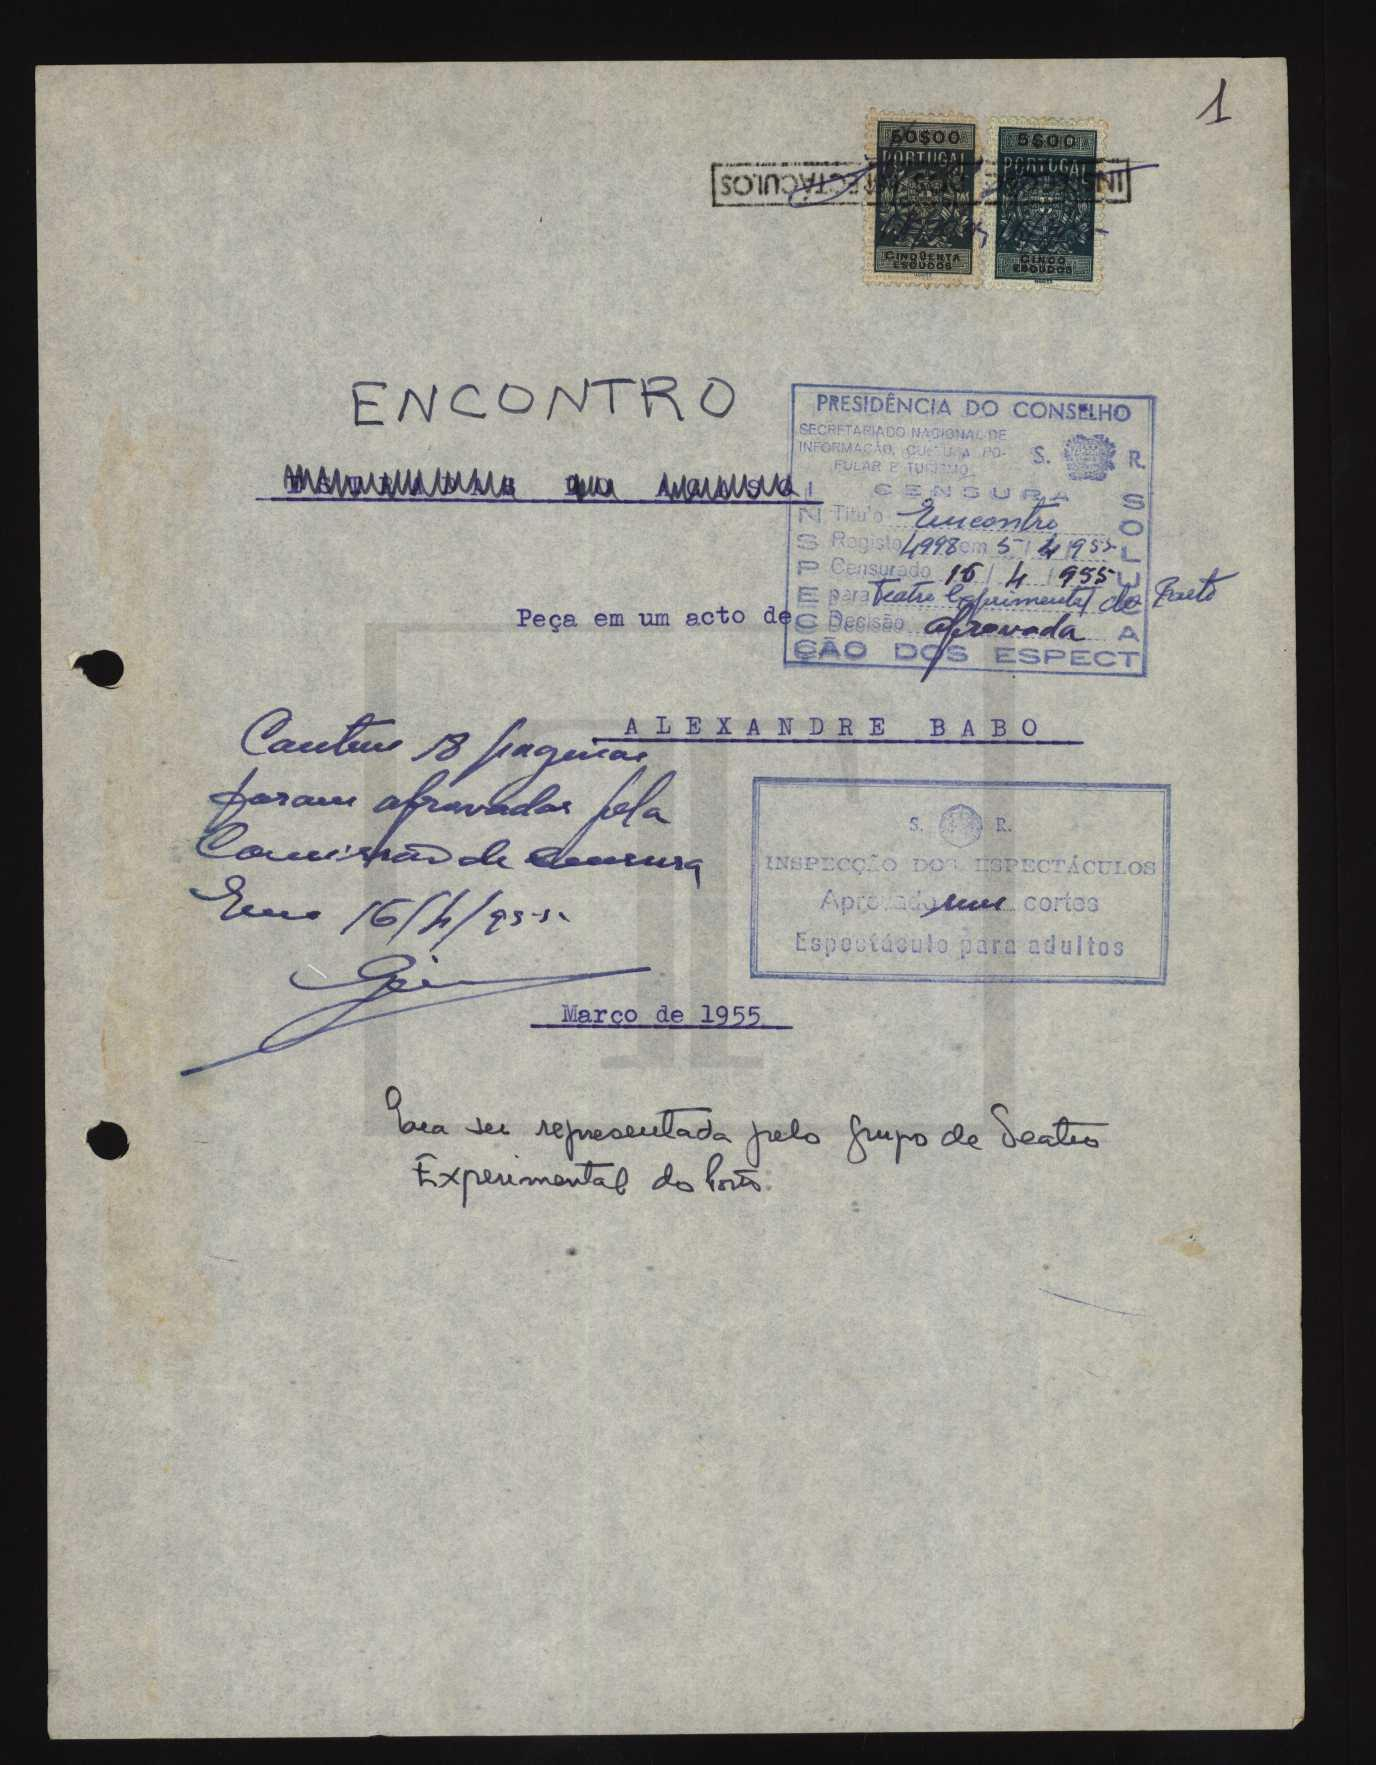 1
50$00
PORTUGAL
CINQÜENTA
ESCUDOS
5$00
PORTUGAL
CINCO
ESCUDOS
ENCONTRO
PRESIDÊNCIA DO CONSELHO
SECRETARIADO NACIONAL DE
INFORMAÇÃO, CULTURA PO-
PULAR E TURISMO
S. R.
CENSURA
Título Encontro
Registo 4998 em 5/4/955
Censurado 16/4/955
para Teatro Experimental do Porto
Decisão aprovada
INSPECÇÃO DOS ESPECT
Peça em um acto de
ALEXANDRE BABO
Contem 18 paginas
foram aprovadas pela
Comissão de censura
Em 16/4/955
S. R.
INSPECÇÃO DOS ESPECTÁCULOS
Aprovado sem cortes
Espectáculo para adultos
Março de 1955
Para ser representada pelo grupo de Teatro
Experimental do Porto.